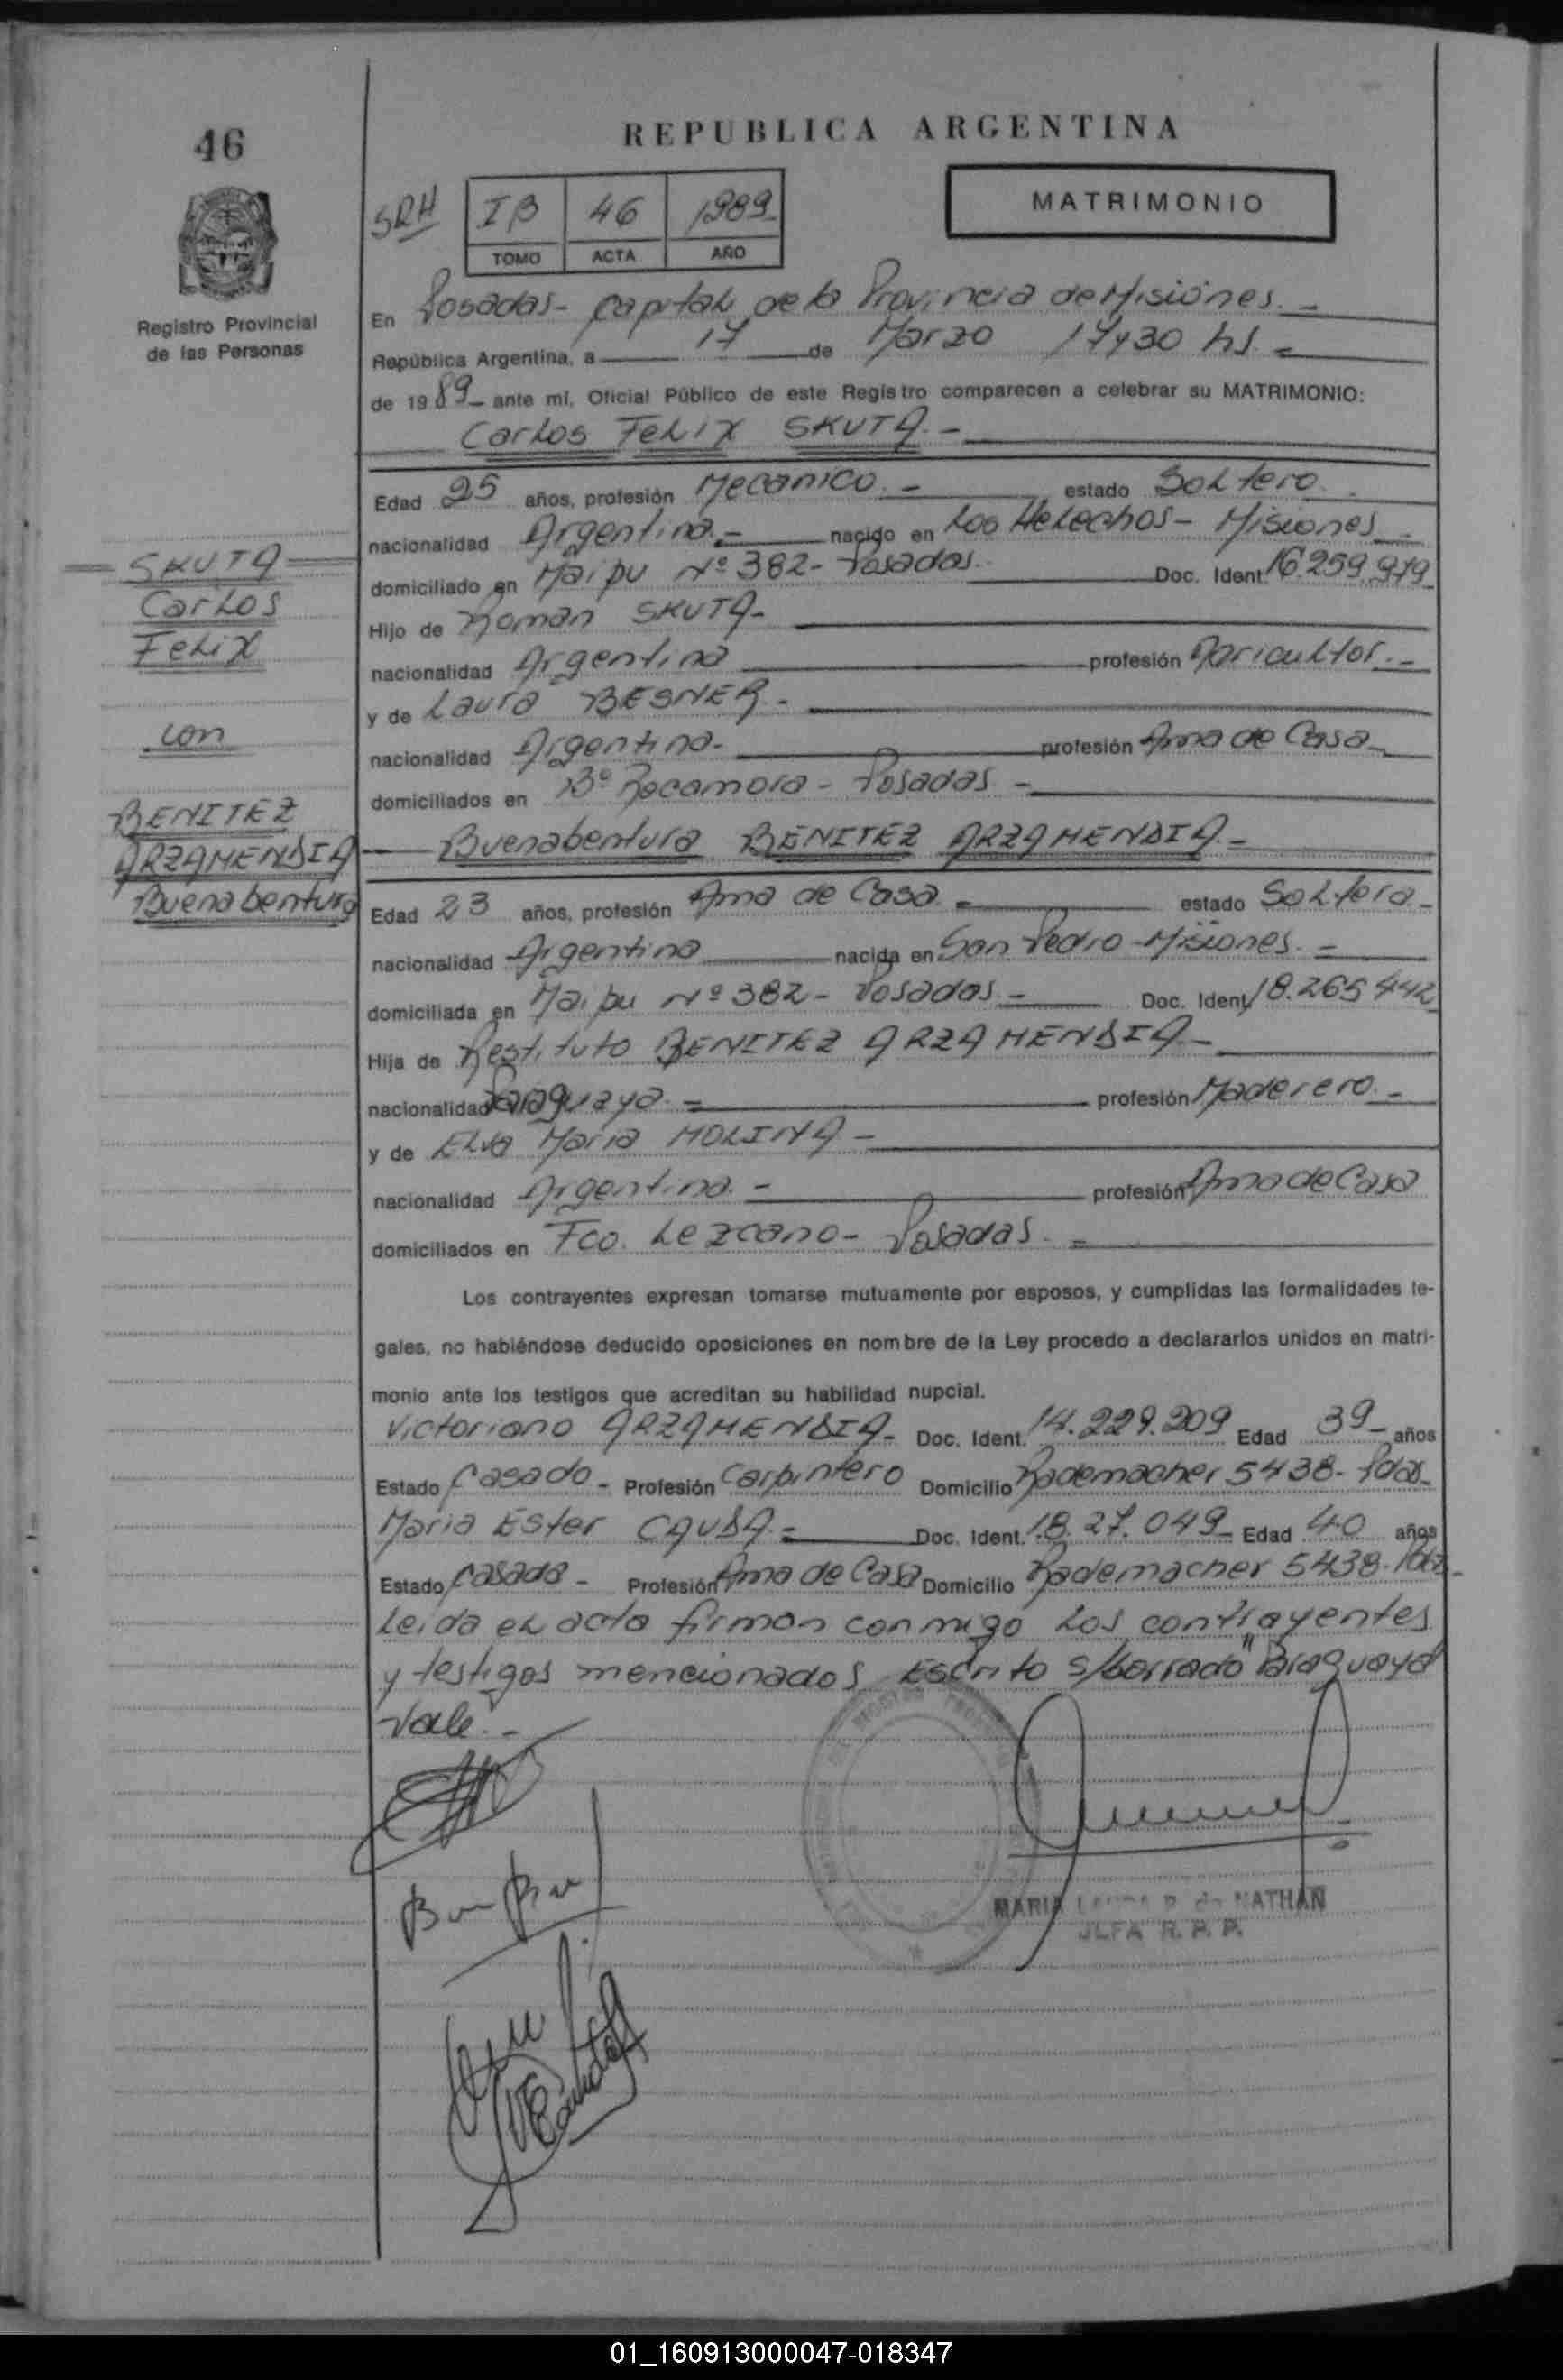 46
REPUBLICA ARGENTINA
SRH
IB 46 1989
TOMO ACTA AÑO
MATRIMONIO
Registro Provincial
de las Personas
En Posadas - Capital de la Provincia de Misiones. -
República Argentina, a 17 de Marzo 17y30 hs. -
de 1989 - ante mí, Oficial Público de este Registro comparecen a celebrar su MATRIMONIO:
Carlos Felix SKUTA. -
Edad 25 años, profesión Mecanico. - estado Soltero.
nacionalidad Argentina. - nacido en Los Helechos - Misiones
domiciliado en Maipu Nº 382 - Posadas. Doc. Ident. 16.259.979
Hijo de Roman SKUTA -
nacionalidad Argentina profesión Agricultor. -
y de Laura BESNER. -
nacionalidad Argentina. - profesión Ama de Casa -
domiciliados en Bº Rocamora - Posadas. -
SKUTA
Carlos
Felix
con
BENITEZ
ARZAMENDIA
Buenabentura
Buenabentura BENITEZ ARZAMENDIA. -
Edad 23 años, profesión Ama de Casa. - estado Soltera -
nacionalidad Argentina nacida en San Pedro - Misiones. -
domiciliada en Maipu Nº 382 - Posadas. - Doc. Ident. 18.265.442
Hija de Restituto BENITEZ ARZAMENDIA. -
nacionalidad Paraguaya. - profesión Maderero. -
y de Elva Maria MOLINA -
nacionalidad Argentina. - profesión Ama de Casa
domiciliados en Fco. Lezcano - Posadas. -
Los contrayentes expresan tomarse mutuamente por esposos, y cumplidas las formalidades le-
gales, no habiéndose deducido oposiciones en nombre de la Ley procedo a declararlos unidos en matri-
monio ante los testigos que acreditan su habilidad nupcial.
Victoriano ARZAMENDIA - Doc. Ident. 14.229.209 Edad 39 - años
Estado Casado - Profesión Carpintero Domicilio Rademacher 5438 - Pdas.
Maria Ester CAUDA. - Doc. Ident. 18.27.049 Edad 40 años
Estado Casada - Profesión Ama de Casa Domicilio Rademacher 5438 - Pdas -
Leida el acta firman conmigo los contrayentes
y testigos mencionados Escrito s/borrado "Paraguaya"
Vale. -
MARIA LAURA de NATHAN
JEFA R. P. P.
01_160913000047-018347